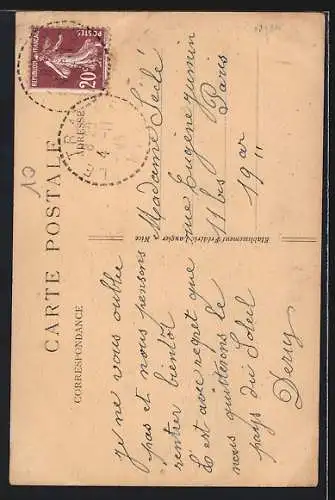 CARTE POSTALE
CORRESPONDANCE
ADRESSE
REPUBLIQUE FRANÇAISE
POSTES
20c
10
je ne vous oublie
pas et nous pensons
rentrer bientôt
C'est avec regret que
nous quitterons le
pays du Soleil
Derry
Etablissement Frédéric Laugier Nice
Madame Siclé
rue Eugène Jumin
11 bis Paris
19 ar